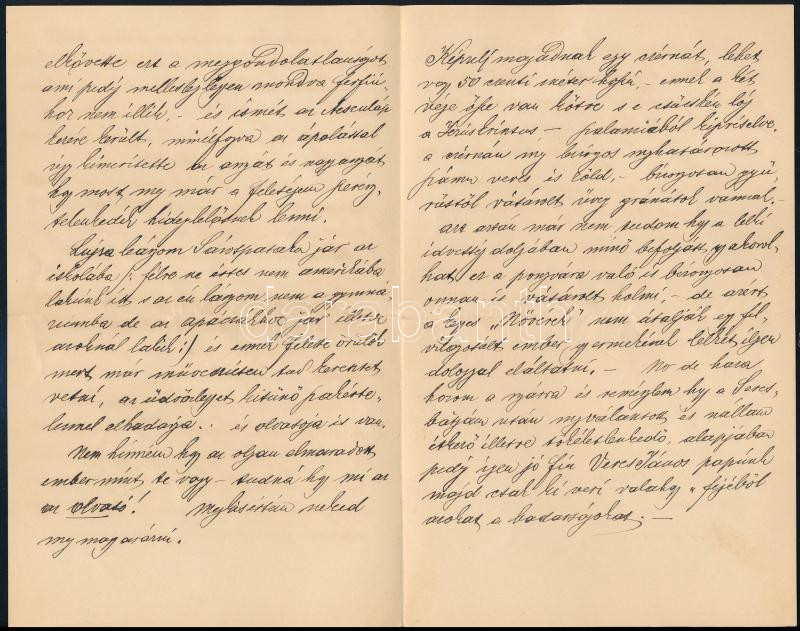 elkövette ezt a meggondolatlanságot
ami pedig mellesleg legyen mondva férfiú-
hoz nem illik, - és ismét az Aesculap
kezeire került, minélfogva az ápolással
úgy kimerítette az anyját és nagyanyját
hgy most my már a feleségem
hideglelősnek lenni.
Lujza leányom Sárospatakra jár az
iskolába /: félre ne értes nem amerikába
lakunk itt s az én lányom nem a gymná-
ziumba de az apáczákhoz jár illetve
azoknál lakik :/ és ennek felette örülök
mert már művésziesen tud keresztet
vetni, az üdvözlégyet kitünő
elhadarja .. és olvasója is van.
Nem hinném hgy az olyan elmaradott
ember mint te vagy - tudná hgy mi az
az olvasó! Megkisértem neked
my magyarázni.
Képzelj magadnak egy czérnát, lehet
vagy 50 czenti méter hosszú, - ennek a két
vége össze van kötve s e csücskén lóg
a Jézus Krisztus - kipréselve,
a czérnán my bizonyos meghatározott
száma veres és zöld, - bizonyosan
vásárolt üveg gránátok vannak, -
azt aztán már nem tudom hgy a lelki
idvesség dolgában minő befolyást gyakorol-
hat ez a ponyvára való és bizonyosan
onnan is vásárolt holmi, - de azért
a kegyes „Nővérek" nem átalják egy fel-
világosult ember gyermekének lelkét ilyen
dologgal eláltatni. - No de haza
hozom a nyárra és reménylem hgy a Szecs-
után nyilvánított és nállam
étkező illetve tökéletlenkedő, alapjában
pedig igen jó fiú Veres János papunk
majd csak ki veri valahogy a fejéből
azokat a badarságokat. -
darabanth